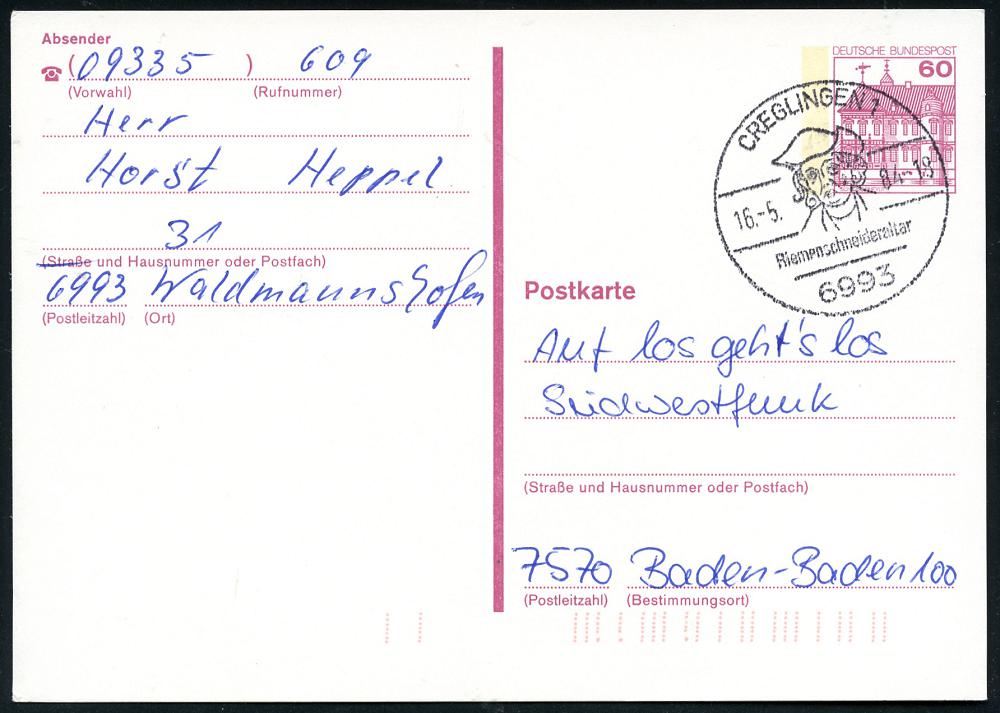 Absender
(09335) 609
(Vorwahl) (Rufnummer)
Herr
Horst Heppel
31
(Straße und Hausnummer oder Postfach)
6993 Waldmannshofen
(Postleitzahl) (Ort)
DEUTSCHE BUNDESPOST
60
CREGLINGEN 1
16.-5. 84-18
Riemenschneideraltar
6993
Postkarte
Auf los geht's los
Südwestfunk
(Straße und Hausnummer oder Postfach)
7570 Baden-Baden 100
(Postleitzahl) (Bestimmungsort)